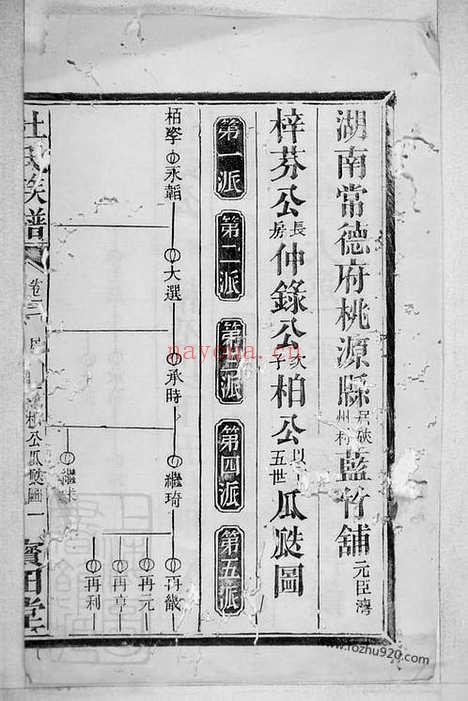 湖南常德府桃源縣 藍竹舖元臣灣
梓芬公長房仲錄公次子柏公 五世瓜瓞圖
第一派 第二派 第三派 第四派 第五派
栢學 永韜 大選 承時 繼琦 再儀
再元
再亨
再利
杜氏族譜 卷三 柏公瓜瓞圖一 寶田堂
nayona.cn
www.fozhu920.com